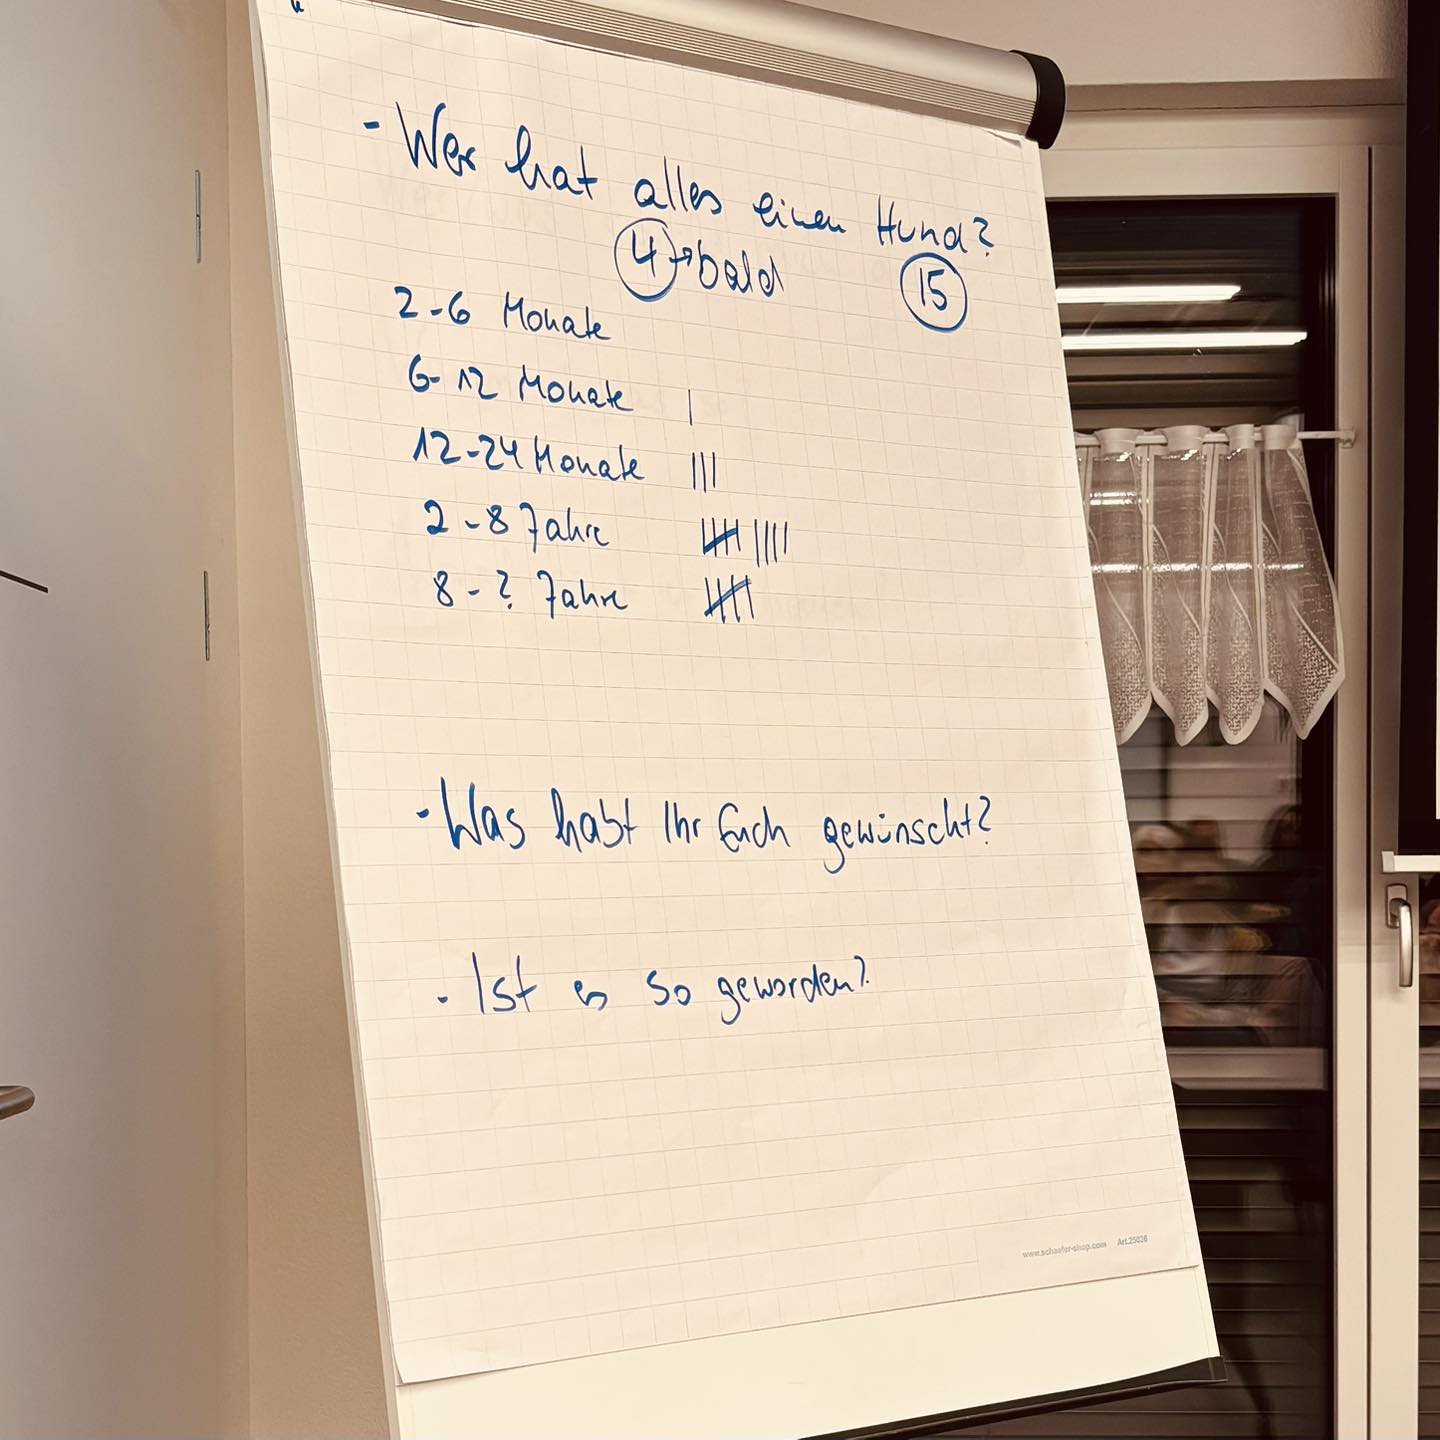 - Wer hat alles einen Hund?
4 → bald 15
2-6 Monate
6-12 Monate |
12-24 Monate |||
2-8 Jahre |||| ||||
8-? Jahre ||||
- Was habt Ihr Euch gewünscht?
- Ist es so geworden?
www.schaefer-shop.com Art.25026